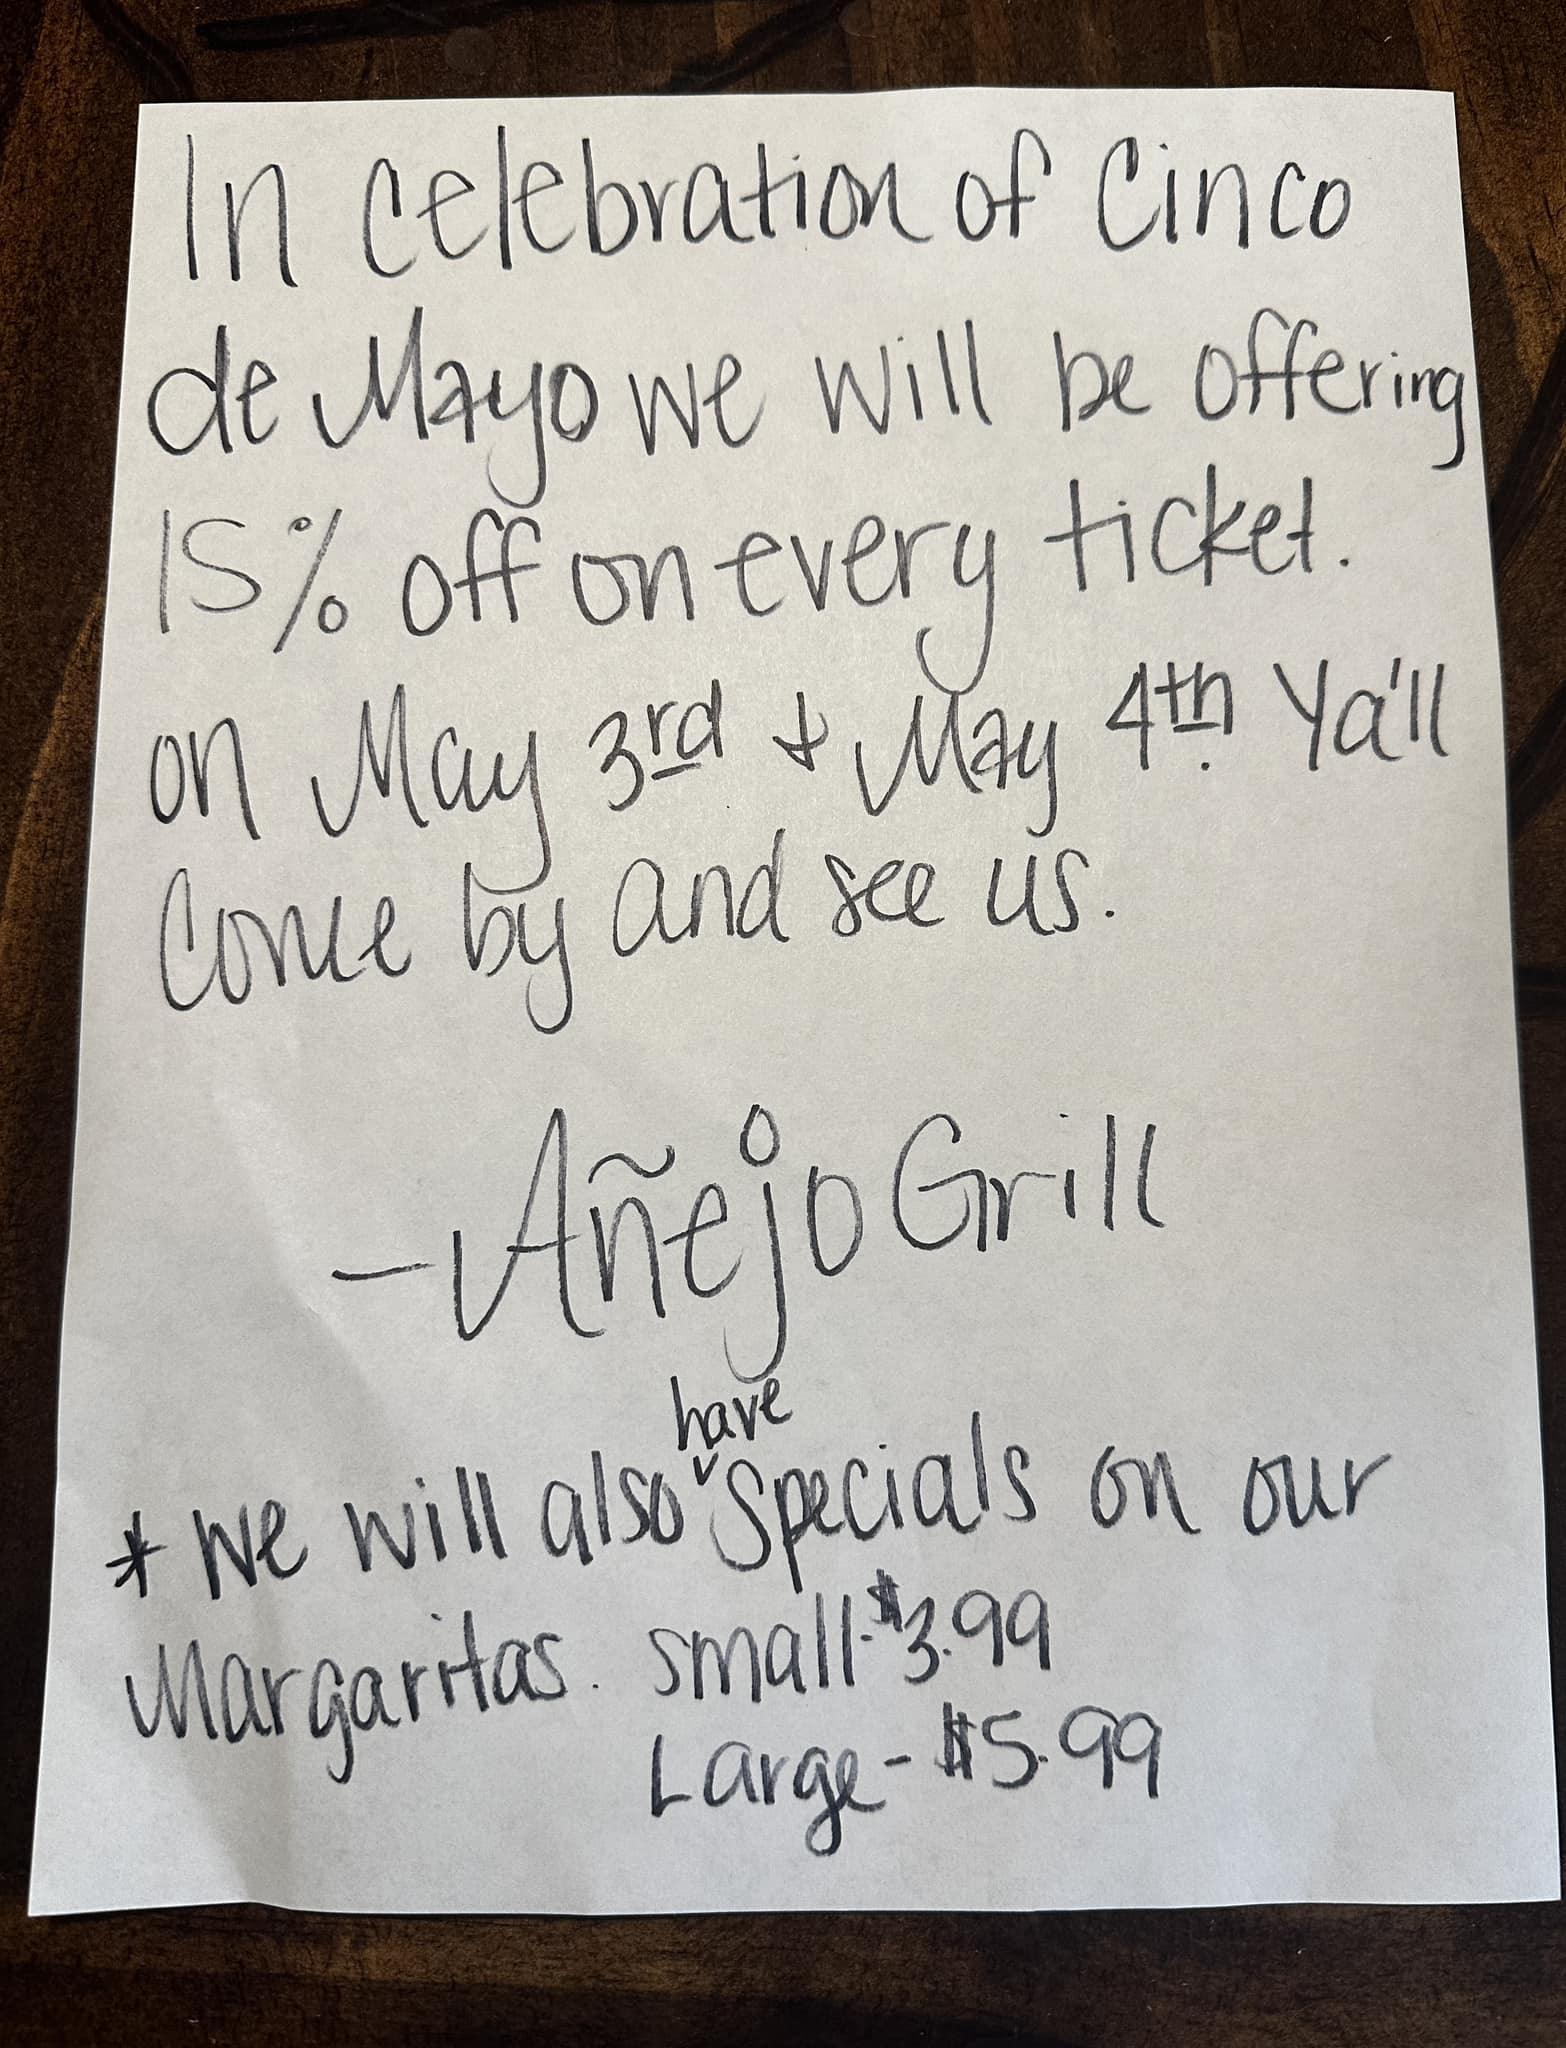 In celebration of Cinco
de Mayo we will be offering
15% off on every ticket.
on May 3rd & May 4th. Ya'll
Come by and see us.
- Añejo Grill
have
* We will also ˅ Specials on our
Margaritas. small - $3.99
Large - $5.99